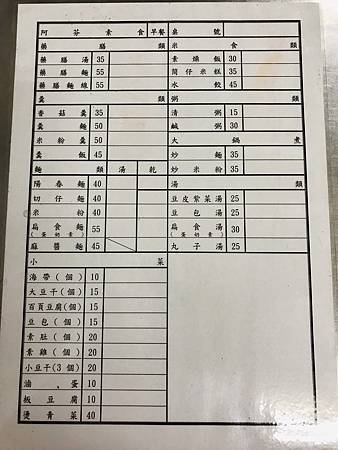 阿芬素食 早餐 桌號
藥膳類
藥膳湯 35
藥膳麵 55
藥膳麵線 55
羹類
香菇羹 35
羹麵 50
米粉羹 50
羹飯 45
麵類 湯 乾
陽春麵 40
切仔麵 40
米粉 40
扁食麵 55
(蛋奶素)
麻醬麵 45
小菜
海帶(個) 10
大豆干(個) 15
百頁豆腐(個) 15
豆包(個) 15
素肚(個) 20
素雞(個) 20
小豆干(3個) 20
滷蛋 10
板豆腐 10
燙青菜 40
米食類
素燥飯 30
筒仔米糕 35
水餃 45
粥類
清粥 15
鹹粥 30
大鍋煮
炒麵 35
炒米粉 35
湯類
豆皮紫菜湯 25
豆包湯 25
扁食湯 30
(蛋奶素)
丸子湯 25